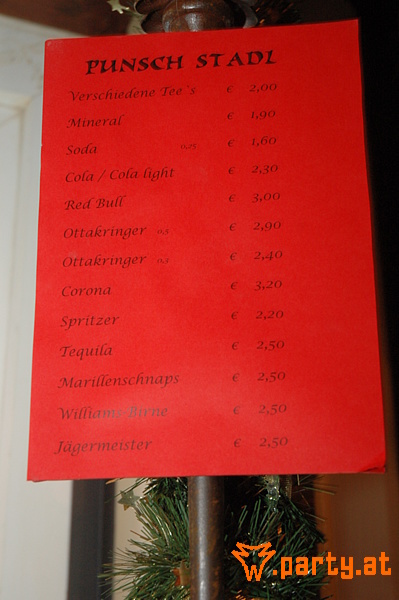 PUNSCH STADL
Verschiedene Tee's € 2,00
Mineral € 1,90
Soda 0,25 € 1,60
Cola / Cola light € 2,30
Red Bull € 3,00
Ottakringer 0,5 € 2,90
Ottakringer 0,3 € 2,40
Corona € 3,20
Spritzer € 2,20
Tequila € 2,50
Marillenschnaps € 2,50
Williams Birne € 2,50
Jägermeister € 2,50
.party.at